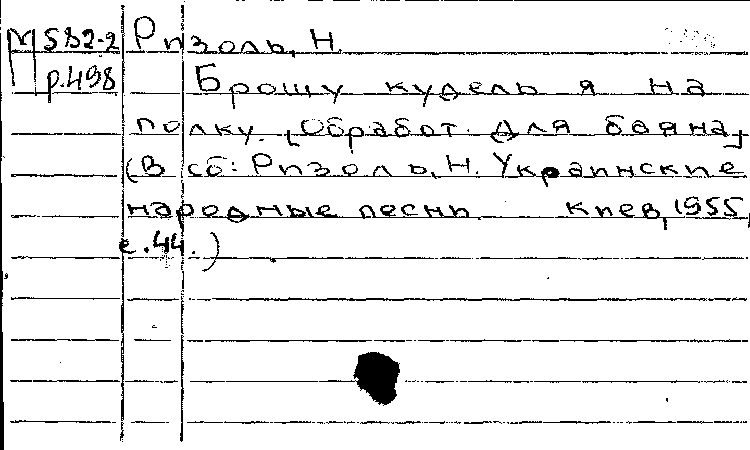 М 582-2 Ризоль, Н.
р.498 Брошу кудель я на
полку. [Обработ. для баяна]
(В сб: Ризоль, Н. Украинские
народные песни. Киев, 1955,
с.44.)